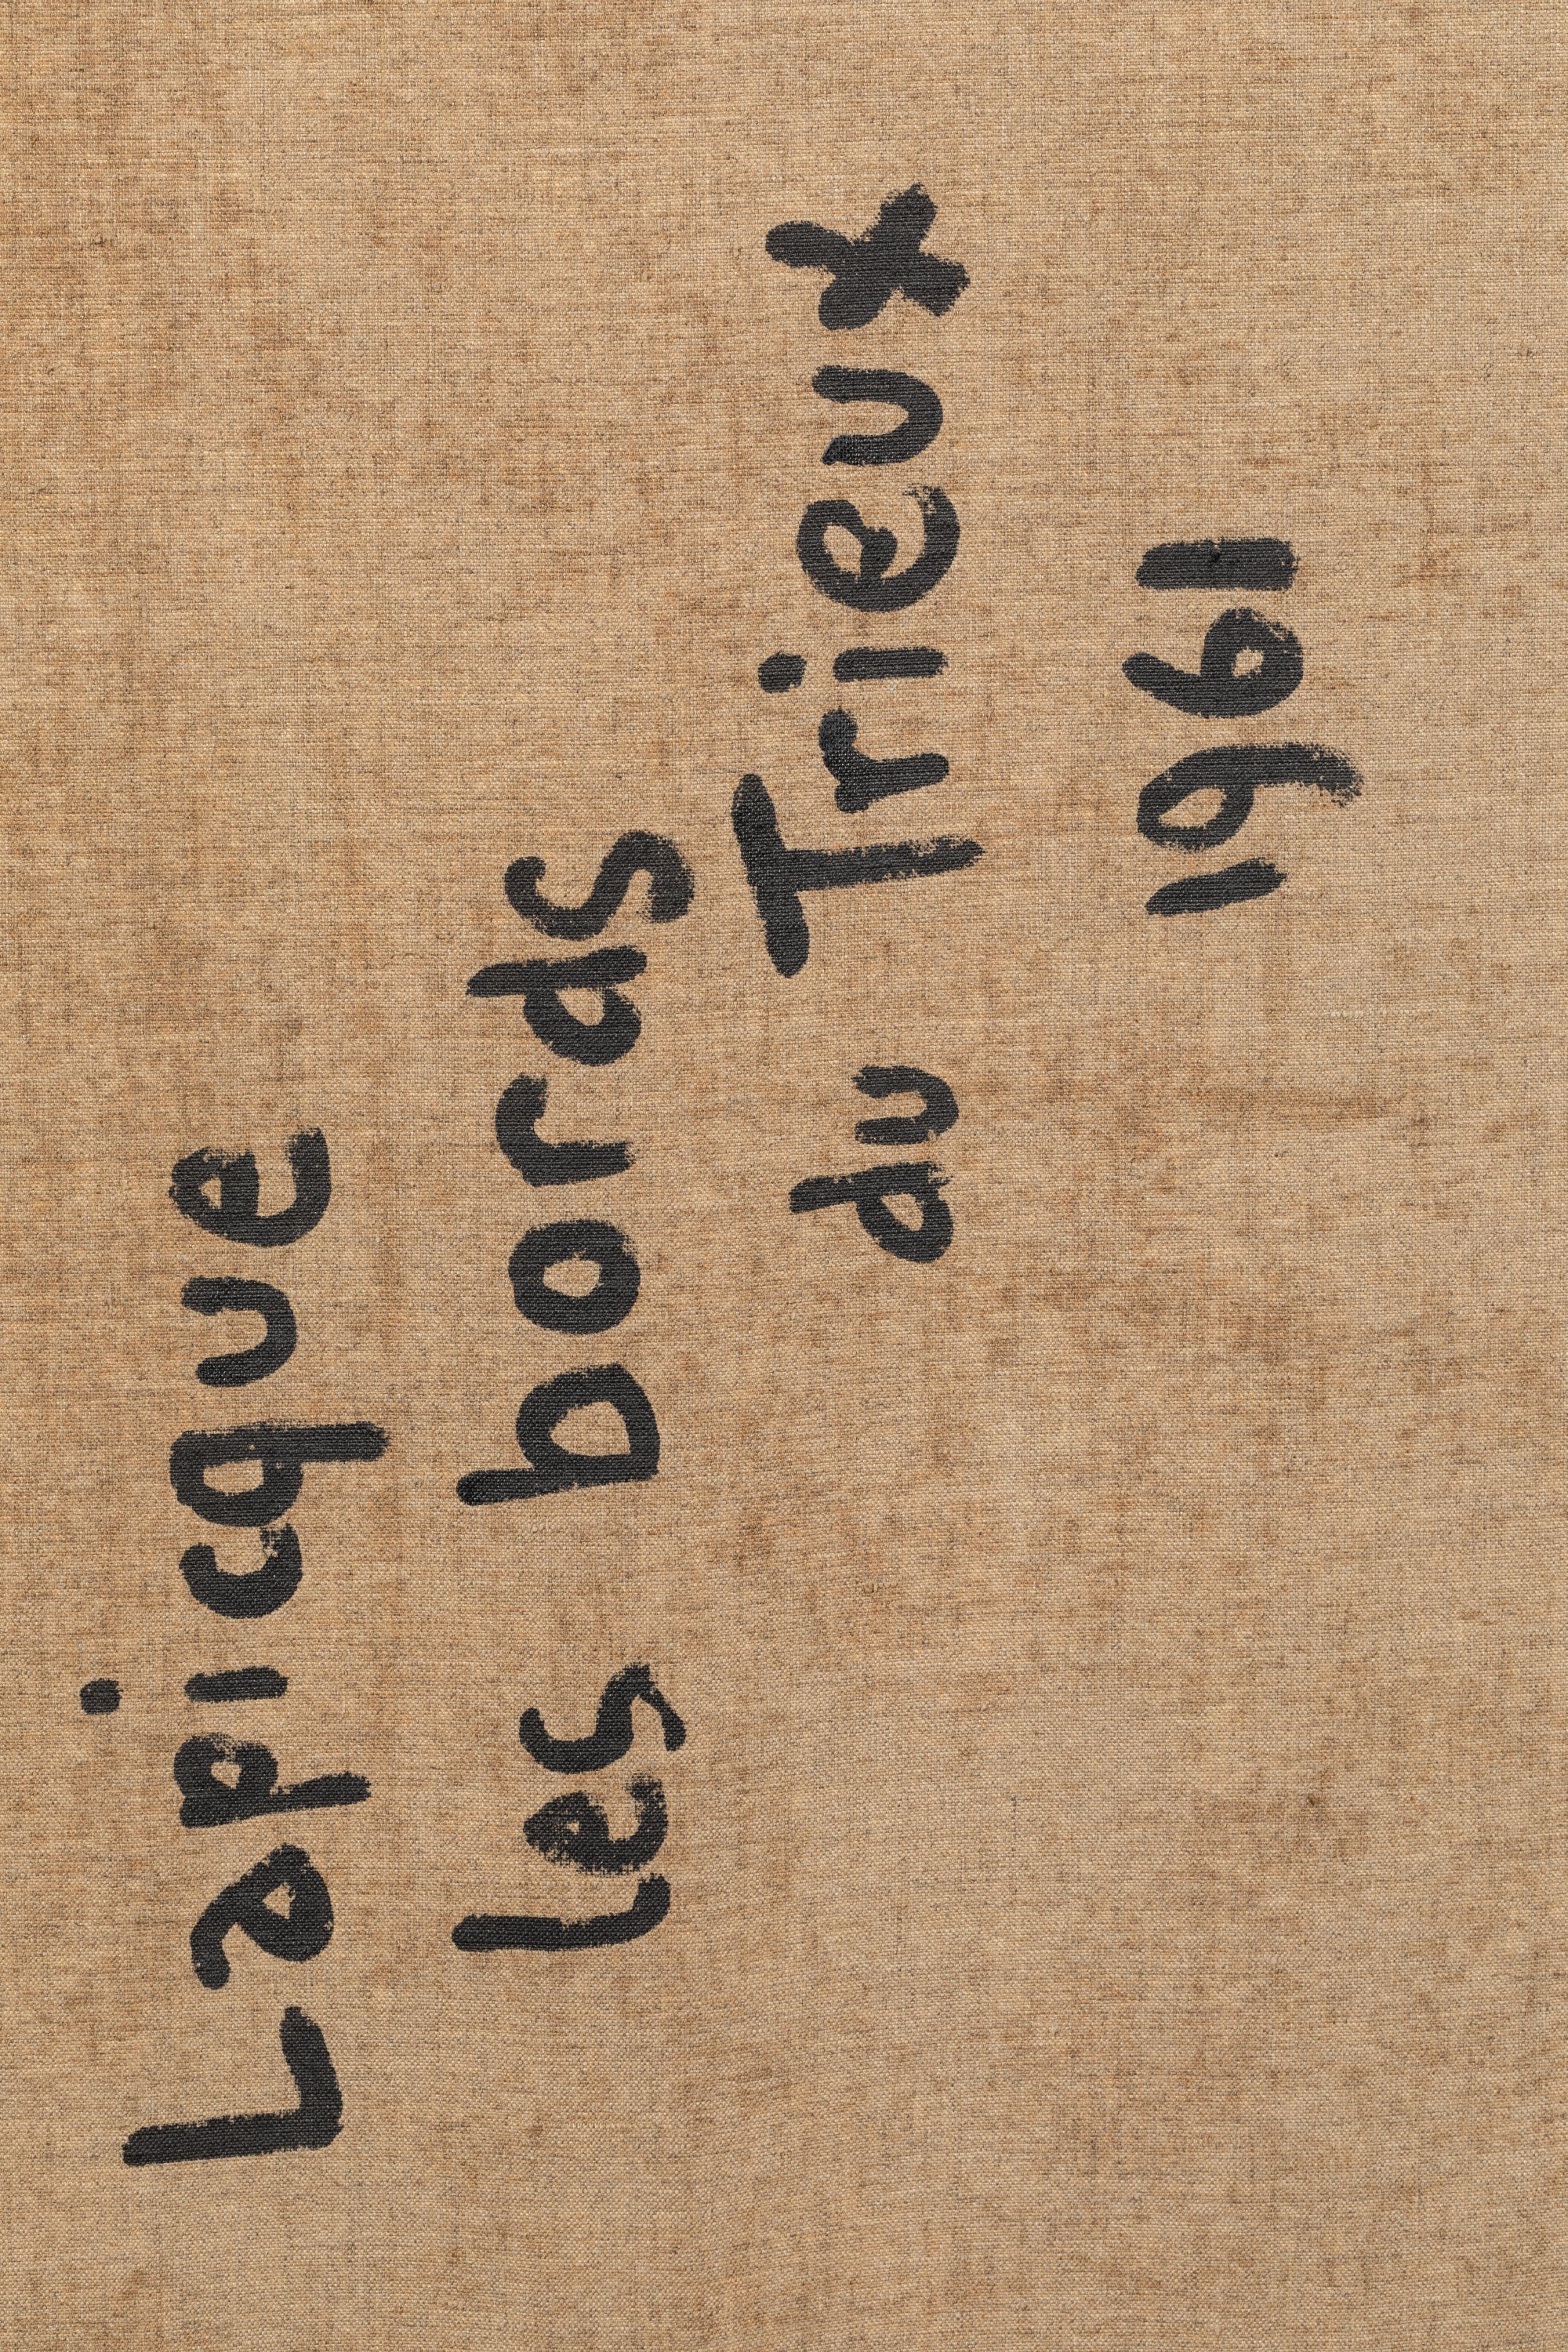 Lapicque
les bords
du Trieux
1961